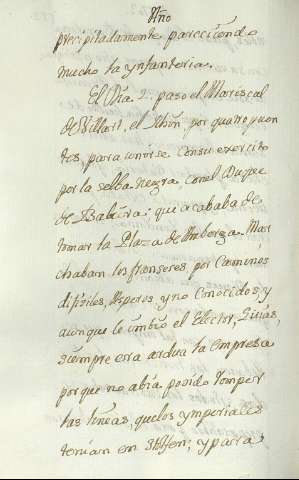 Año
precipitadamente, pareciendo
mucho la ynfanteria.
El Dia 2. paso el Mariscal
de Villars, el Rhin, por quatro puen
tos, para unirse con su exercito
por la selba negra con el Duque
de Babiera: qui acababa de
tomar la Plaza de Mar
chaban los franseses, por Caminos
dificiles, Asperos, y no Conocidos, y
aunque le embio el Elector, Guias,
siempre era ardua la empresa
porque no abia podido romper
las lineas, que los ymperiales
tenian em y para